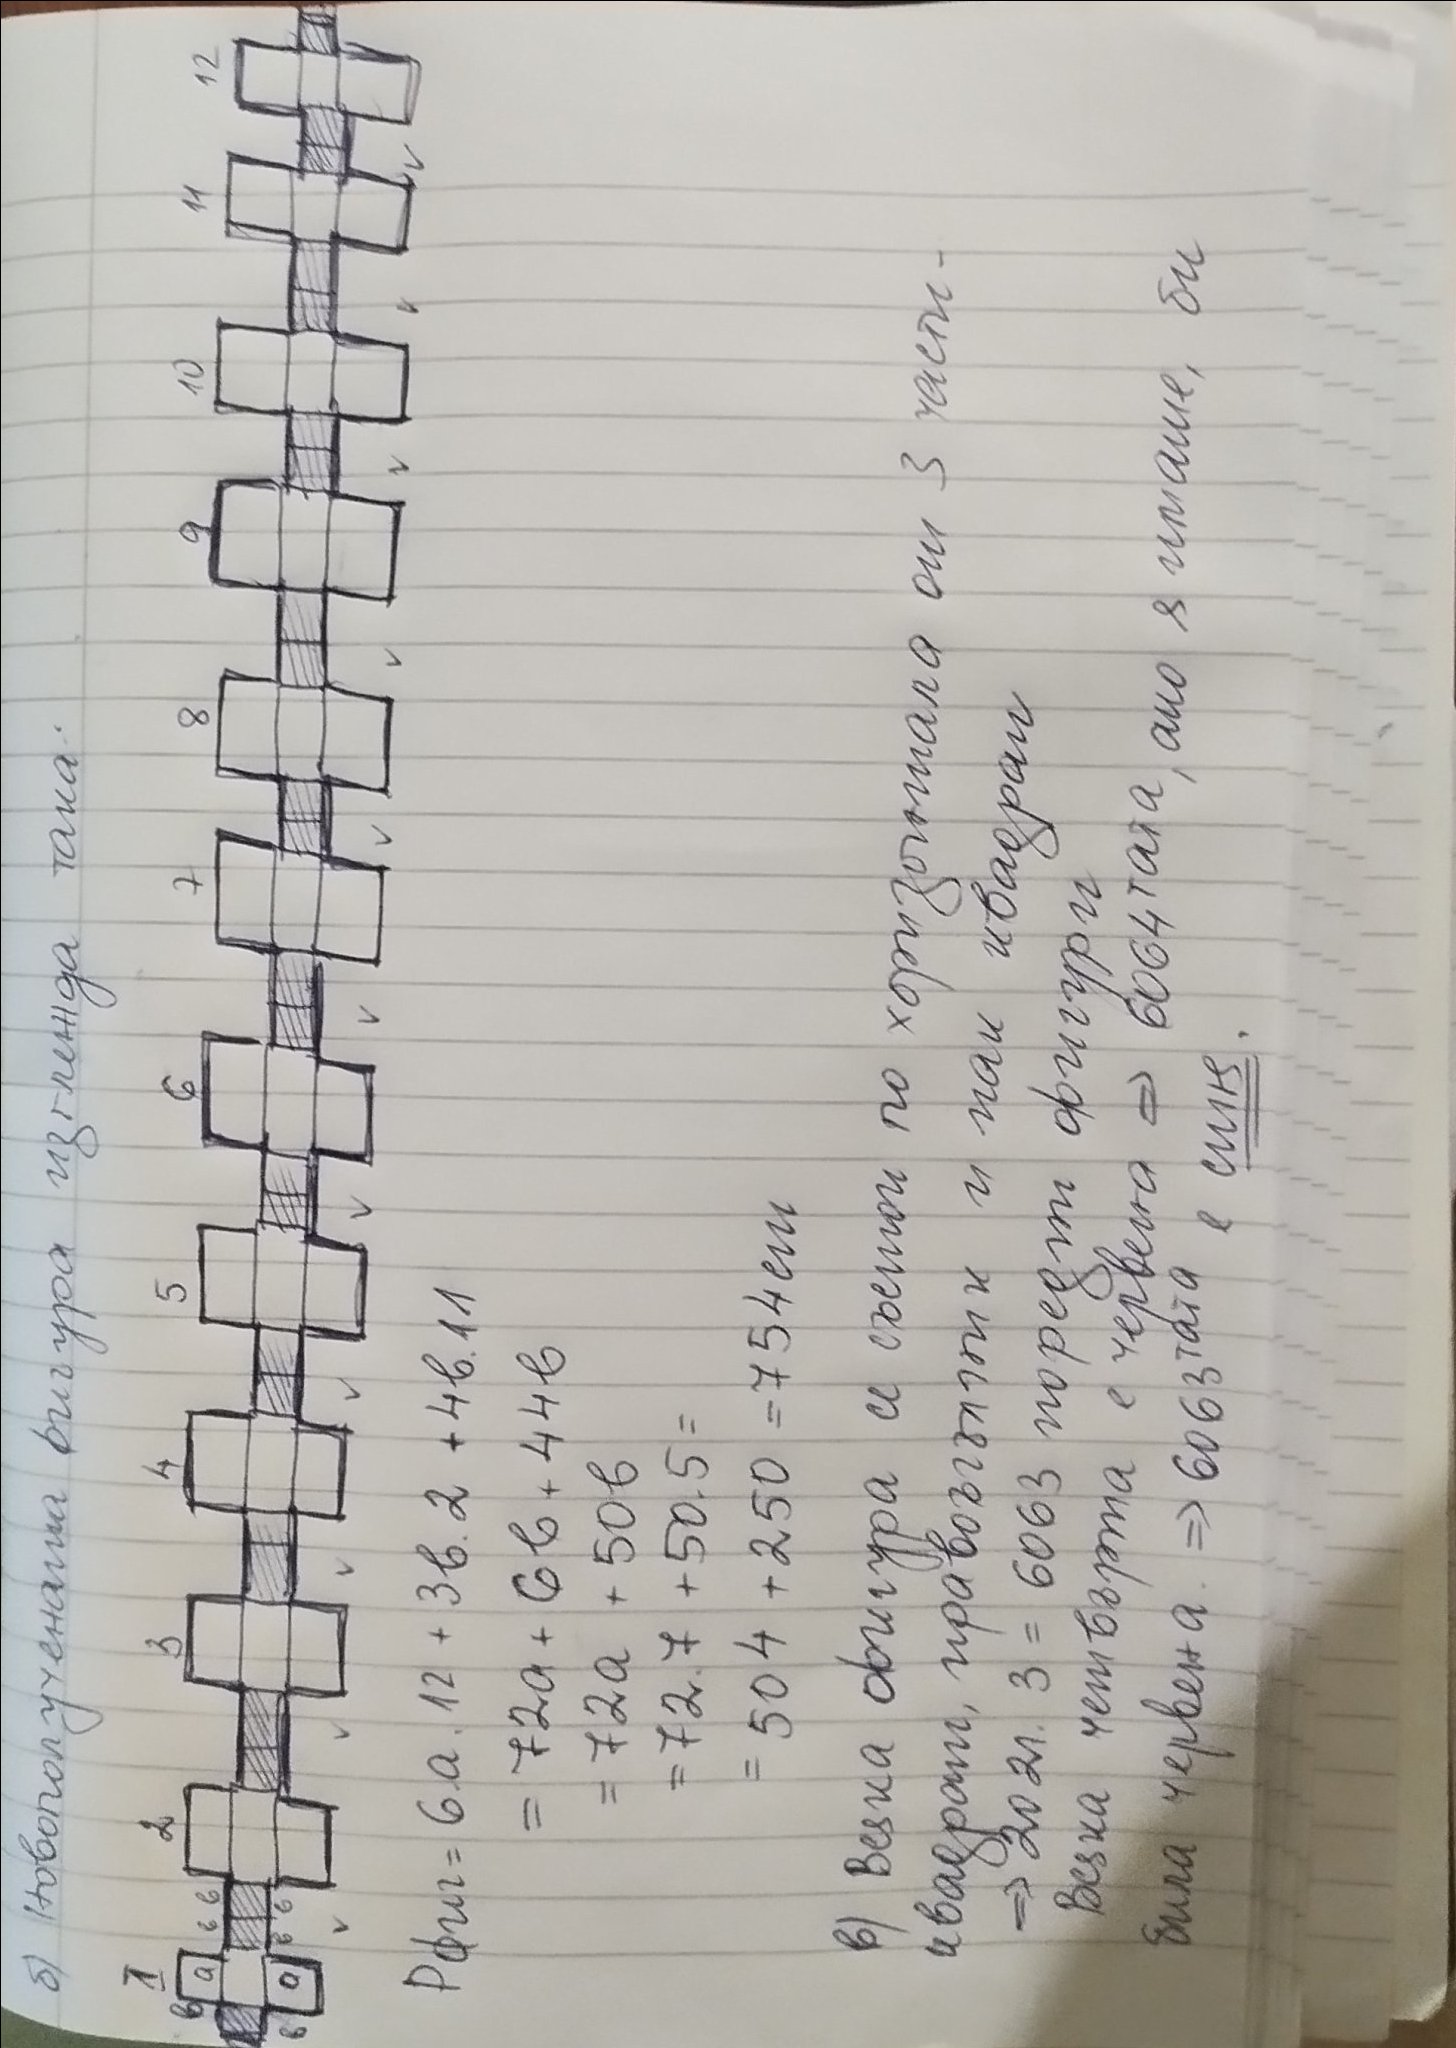 б) Новополучената фигура изглежда така:
1 2 3 4 5 6 7 8 9 10 11 12
в a в в
в a в в
Pфиг = 6.a.12 + 3в.2 + 4в.11
= 72a + 6в + 44в
= 72a + 50в
= 72.7 + 50.5 =
= 504 + 250 = 754 cm
в) Всяка фигура се състои по хоризонтала от 3 части -
квадрат, правоъгълник и пак квадрат
=> 2021.3 = 6063 поредни фигури
Всяка четвърта е червена => 6064тата, ако я имаше, би
била червена. => 6063тата е синя.